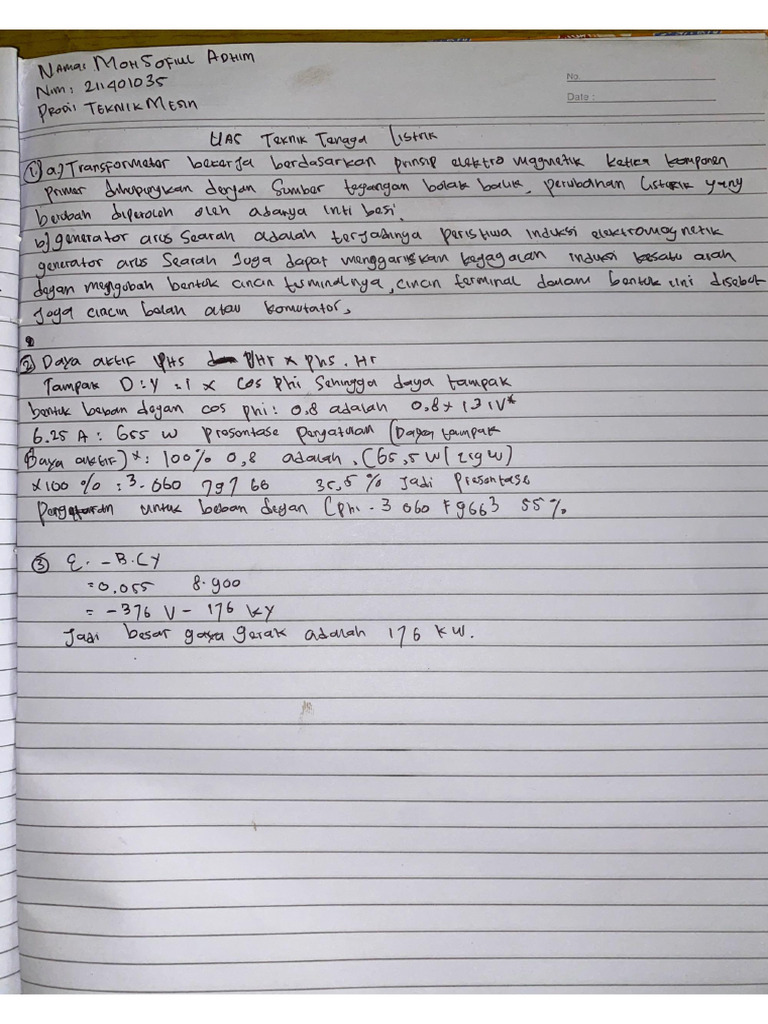 Nama: MOH SOFIUL ADHIM
Nim: 211401035
Prodi: TEKNIK MESIN
No.
Date :
UAS Teknik Tenaga Listrik
1) a.) Transformator bekerja berdasarkan prinsip elektro magnetik ketica komponen
primer dihupungkan dengan Sumber tegangan bolak balik, perubahan listrik yang
berubah diperoleh oleh adanya inti besi.
b) generator arus Searah adalah terjadinya peristiwa induksi elektromagnetik
generator arus Searah Juga dapat menggariskan induksi kesatu arah
dengan mengubah bentuk cincin terminalnya, cincin terminal dalam bentuk ini disebut
Juga cincin belah atau komutator.
2) Daya aktif
Tampak D : Y = 1 x cos phi Sehingga daya tampak
bentuk beban dengan cos phi : 0,8 adalah 0,8 x 131 V*
6.25 A : 655 W prosontase pengaturan (Daya tampak
Daya aktif) x : 100% 0,8 adalah . (65,5 W (
x100 % : 3.060 797 66 35,5 % Jadi presontase
untuk beban dengan (phi - 3 060 F9663 55 %.
3) E. - B.CY
= 0.055 8.900
= -376 V - 176 kY
Jadi besar gaya gerak adalah 176 kW.